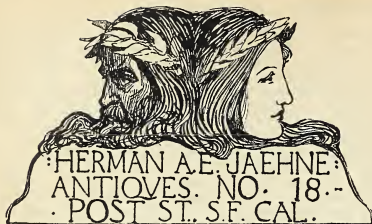 :HERMAN A.E. JAEHNE:
ANTIQVES. NO. 18.-
· POST ST., S.F. CAL. ·